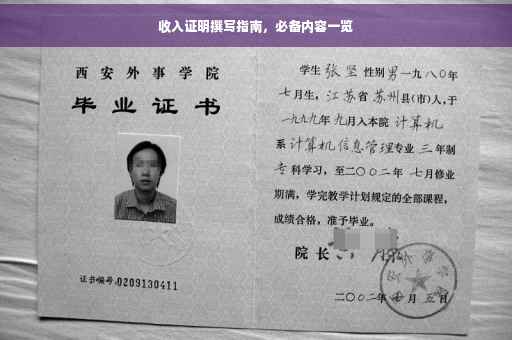 收入证明撰写指南，必备内容一览
西安外事学院
毕业证书
证书编号:0209130411
学生 张坚 性别 男 一九八〇年
七月生，江苏省 苏州县(市)人，于
一九九九年 九月入本院 计算机
系 计算机信息管理专业 三 年制
专科学习，至二〇〇二年 七月修业
期满，学完教学计划规定的全部课程，
成绩合格，准予毕业。
院长
二〇〇二年 七月 五日